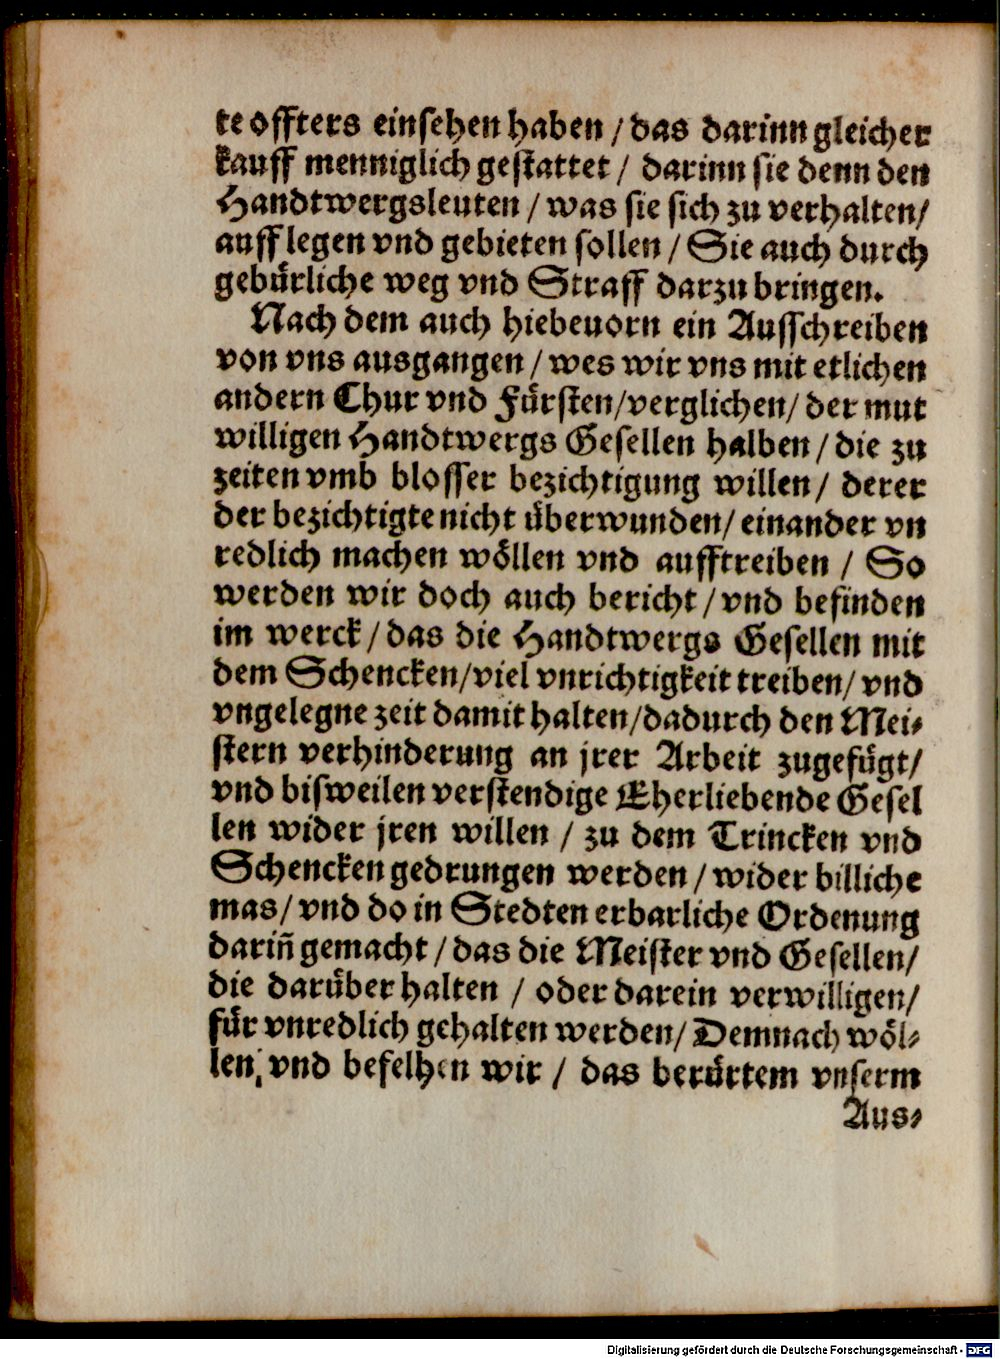 te offters einsehen haben / das darinn gleicher
kauff menniglich gestattet / darinn sie denn den
Handtwergsleuten / was sie sich zu verhalten /
auff legen vnd gebieten sollen / Sie auch durch
gebürliche weg vnd Straff darzu bringen.
Nach dem auch hiebeuorn ein Ausschreiben
von vns ausgangen / wes wir vns mit etlichen
andern Chur vnd Fürsten / verglichen / der mut
willigen Handtwergs Gesellen halben / die zu
zeiten vmb blosser bezichtigung willen / derer
der bezichtigte nicht überwunden / einander vn
redlich machen wöllen vnd aufftreiben / So
werden wir doch auch bericht / vnd befinden
im werck / das die Handtwergs Gesellen mit
dem Schencken / viel vnrichtigkeit treiben / vnd
vngelegne zeit damit halten / dadurch den Mei⸗
stern verhinderung an jrer Arbeit zugefügt /
vnd bisweilen verstendige Eherliebende Gesel
len wider jren willen / zu dem Trincken vnd
Schencken gedrungen werden / wider billiche
mas / vnd do in Stedten erbarliche Ordenung
dariñ gemacht / das die Meister vnd Gesellen /
die darüber halten / oder darein verwilligen /
für vnredlich gehalten werden / Demnach wöl⸗
len vnd befelhen wir / das berürtem vnserm
Aus⸗
Digitalisierung gefördert durch die Deutsche Forschungsgemeinschaft - DFG